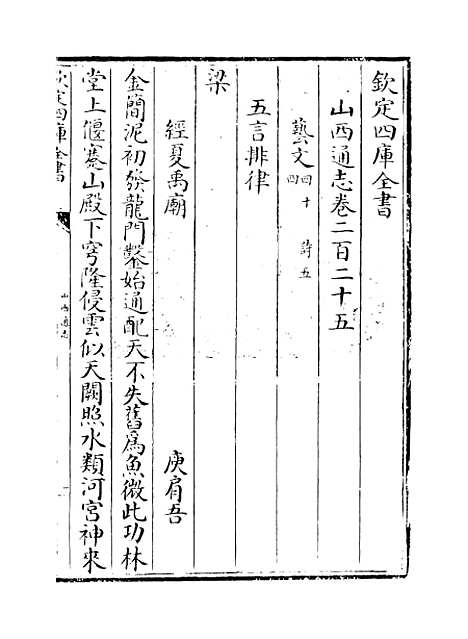 欽定四庫全書
山西通志卷二百二十五
藝文四十四 詩五
五言排律
梁
經夏禹廟 庾肩吾
金簡泥初發龍門鑿始通配天不失舊為魚微此功林
堂上偃蹇山殿下穹隆侵雲似天闕照水類河宮神來
欽定四庫全書
山西通志